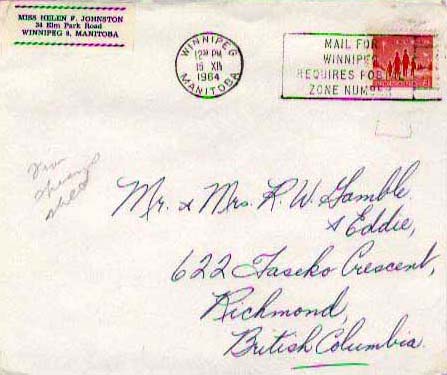 MISS HELEN F. JOHNSTON
34 Elm Park Road
WINNIPEG 8, MANITOBA
WINNIPEG
12 PM
15 XII
1964
MANITOBA
MAIL FOR
WINNIPEG
REQUIRES
ZONE NUMBER
Mr. & Mrs. R. W. Gamble
& Eddie,
622 Taseko Crescent,
Richmond,
British Columbia.